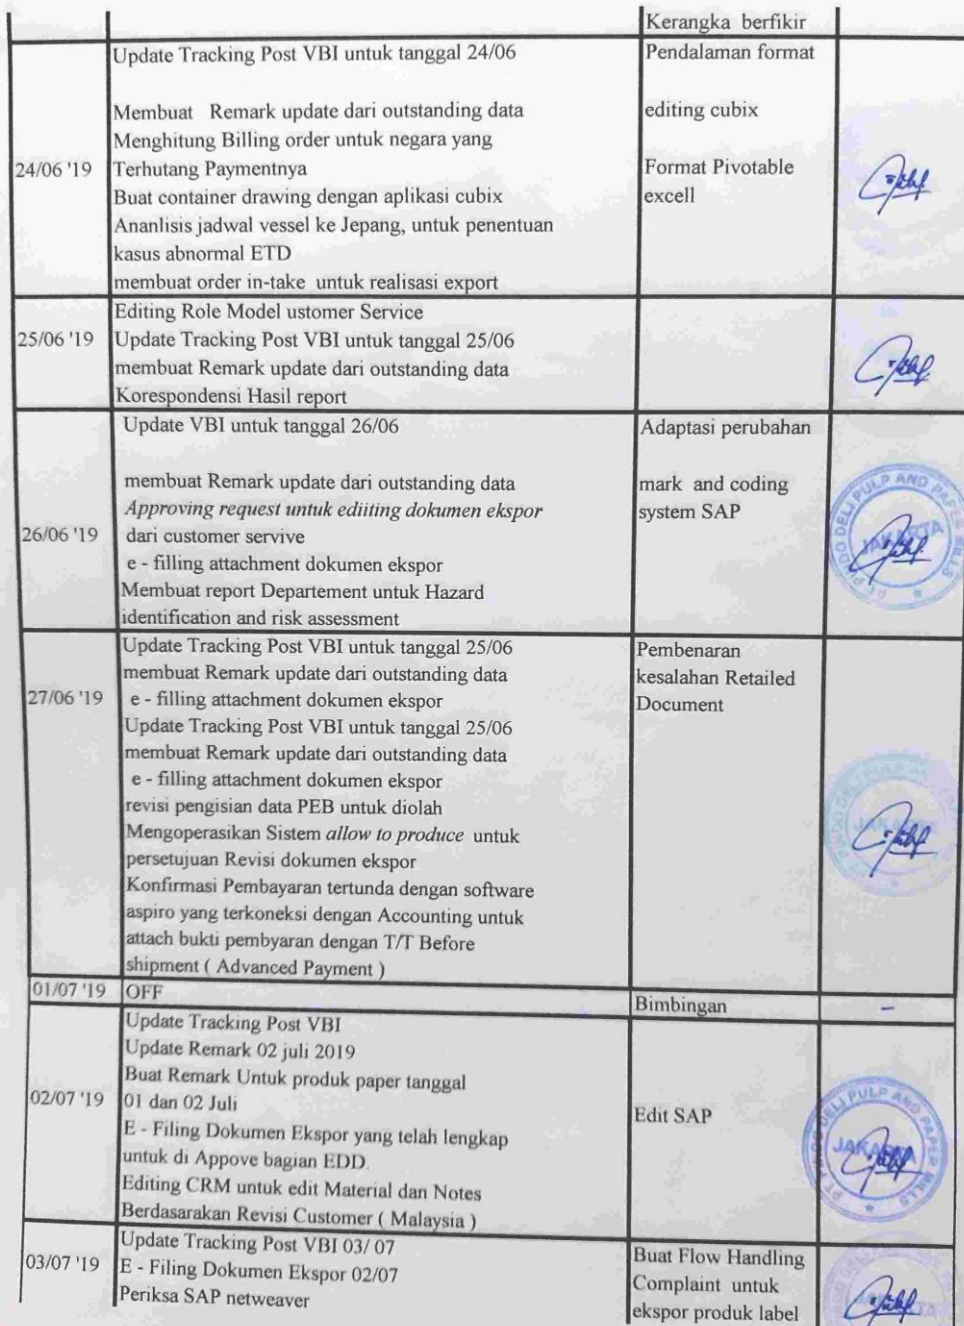 Kerangka berfikir
24/06 '19
Update Tracking Post VBI untuk tanggal 24/06
Membuat Remark update dari outstanding data
Menghitung Billing order untuk negara yang
Terhutang Paymentnya
Buat container drawing dengan aplikasi cubix
Ananlisis jadwal vessel ke Jepang, untuk penentuan
kasus abnormal ETD
membuat order in-take untuk realisasi export
Pendalaman format
editing cubix
Format Pivotable
excell
25/06 '19
Editing Role Model ustomer Service
Update Tracking Post VBI untuk tanggal 25/06
membuat Remark update dari outstanding data
Korespondensi Hasil report
26/06 '19
Update VBI untuk tanggal 26/06
membuat Remark update dari outstanding data
Approving request untuk ediiting dokumen ekspor
dari customer servive
e - filling attachment dokumen ekspor
Membuat report Departement untuk Hazard
identification and risk assessment
Adaptasi perubahan
mark and coding
system SAP
PT. PINDO DELI PULP AND PAPER MILLS
JAKARTA
27/06 '19
Update Tracking Post VBI untuk tanggal 25/06
membuat Remark update dari outstanding data
e - filling attachment dokumen ekspor
Update Tracking Post VBI untuk tanggal 25/06
membuat Remark update dari outstanding data
e - filling attachment dokumen ekspor
revisi pengisian data PEB untuk diolah
Mengoperasikan Sistem allow to produce untuk
persetujuan Revisi dokumen ekspor
Konfirmasi Pembayaran tertunda dengan software
aspiro yang terkoneksi dengan Accounting untuk
attach bukti pembyaran dengan T/T Before
shipment ( Advanced Payment )
Pembenaran
kesalahan Retailed
Document
01/07 '19
OFF
Bimbingan
-
02/07 '19
Update Tracking Post VBI
Update Remark 02 juli 2019
Buat Remark Untuk produk paper tanggal
01 dan 02 Juli
E - Filing Dokumen Ekspor yang telah lengkap
untuk di Appove bagian EDD.
Editing CRM untuk edit Material dan Notes
Berdasarakan Revisi Customer ( Malaysia )
Edit SAP
PT. PINDO DELI PULP AND PAPER MILLS
JAKARTA
03/07 '19
Update Tracking Post VBI 03/ 07
E - Filing Dokumen Ekspor 02/07
Periksa SAP netweaver
Buat Flow Handling
Complaint untuk
ekspor produk label